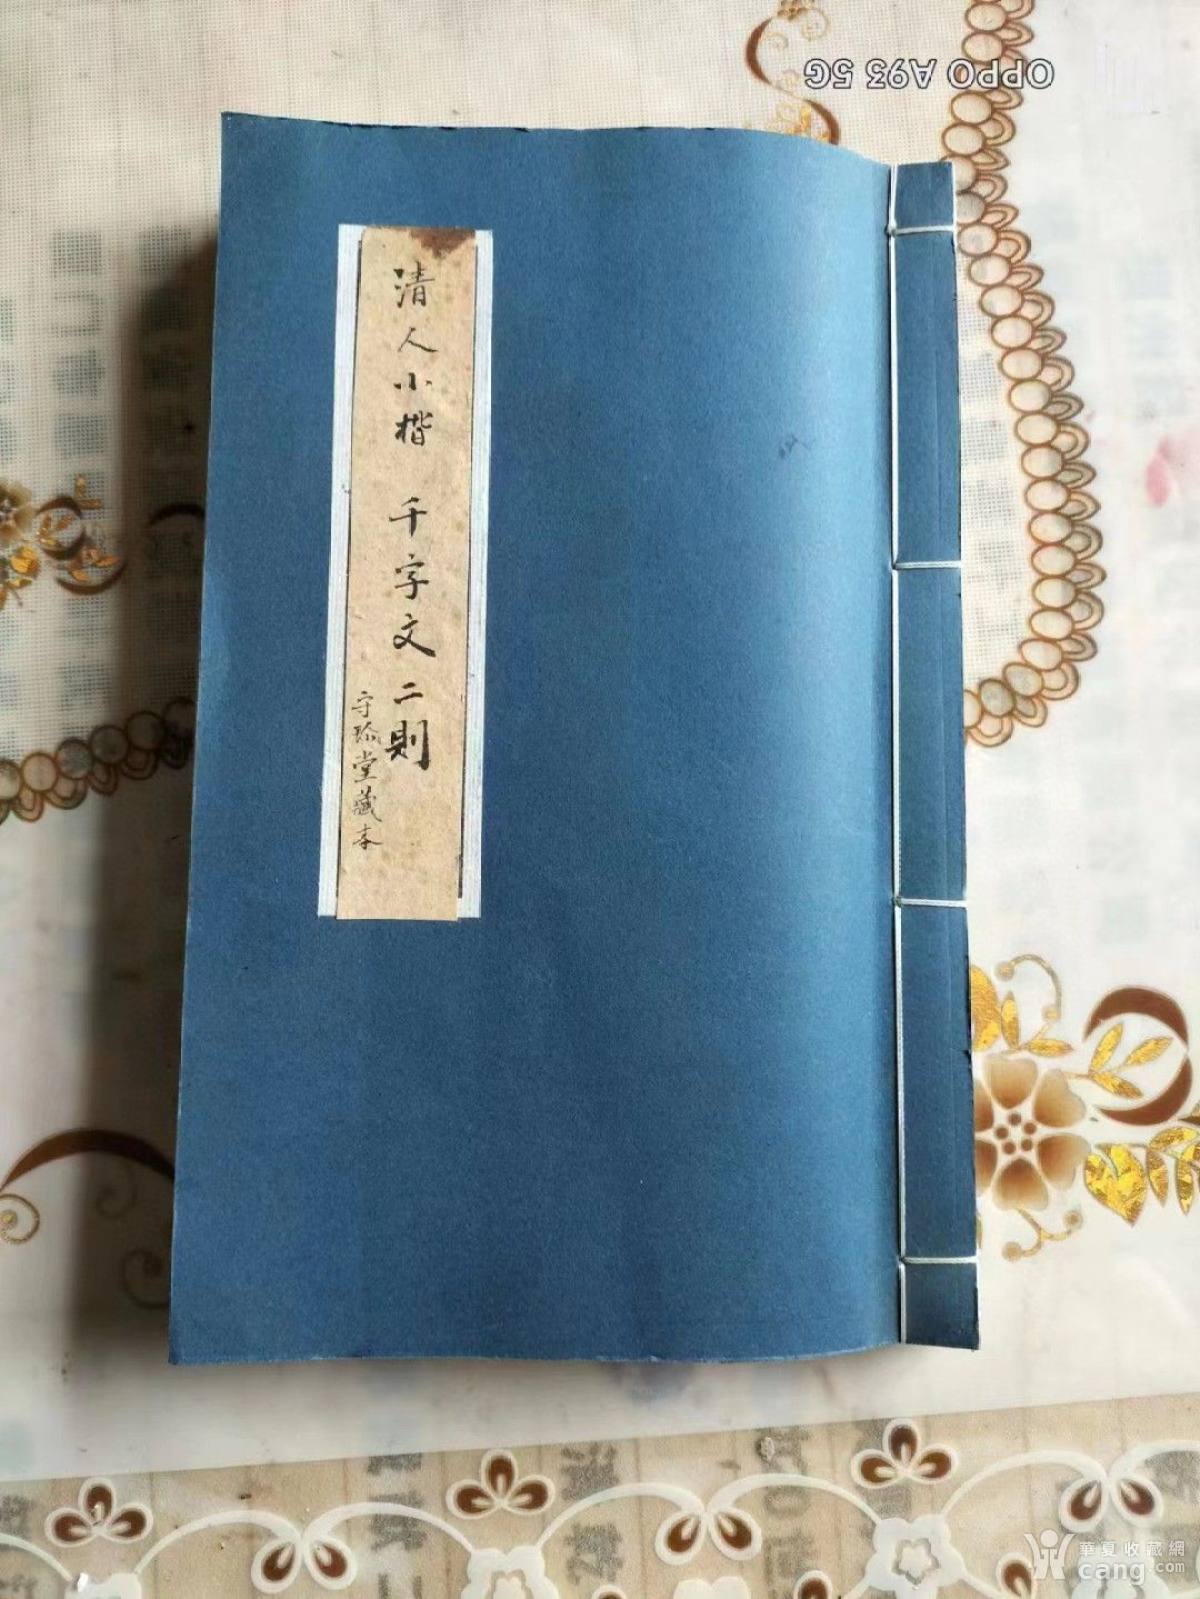 清人小楷 千字文二則
守珍堂藏本
OPPO A93 5G
華夏收藏網
cang.com